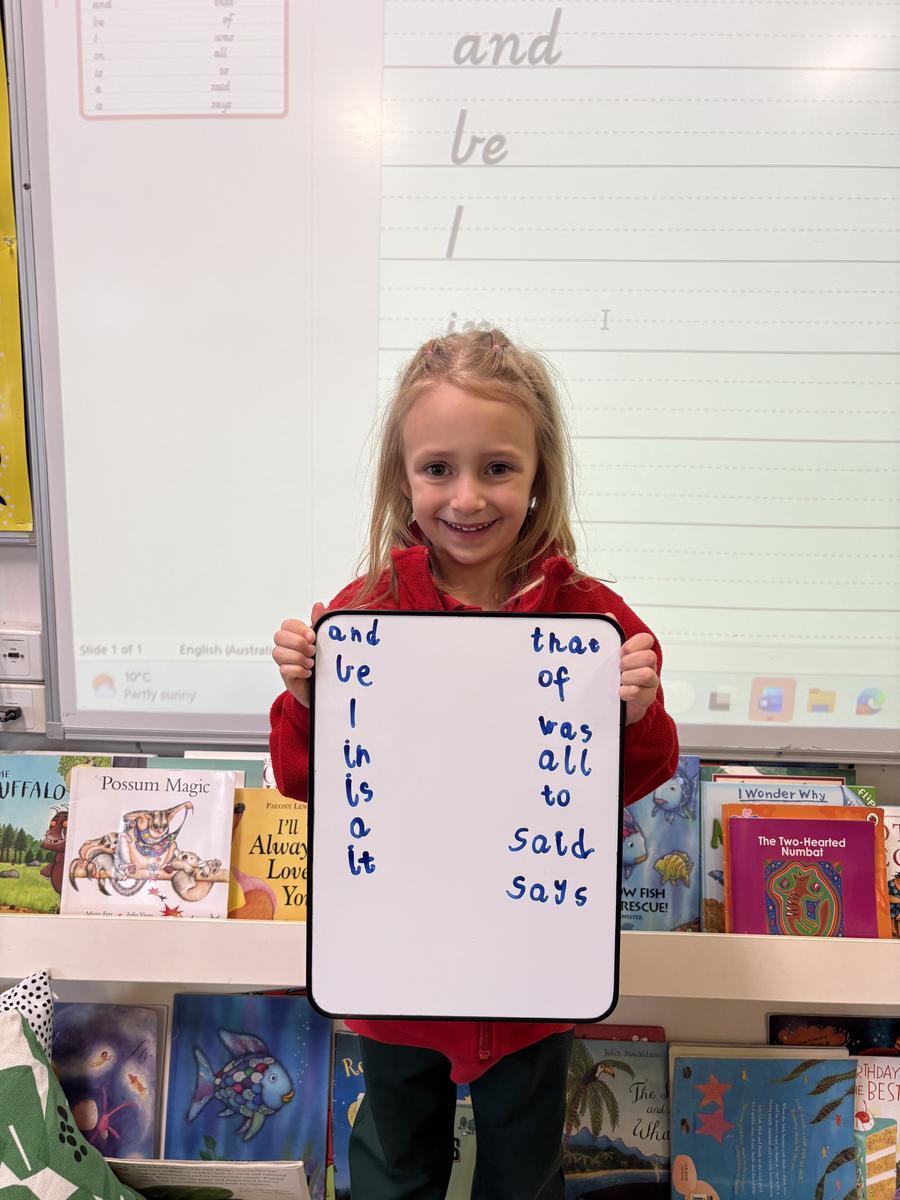 and that
be of
I was
in all
is to
a said
it says
and
be
I
in
Slide 1 of 1 English (Austral
10°C
Partly sunny
and that
be of
I was
in all
is to
a said
it says
THE
UFFALO
Possum Magic
Mem Fox Julie Vivas
PAEONY LEW
I'll
Always
Love
You
OW FISH
RESCUE!
PFISTER
I Wonder Why
FLIP
The Two-Hearted
Numbat
Julia Donaldson
The S
and
Wha
RTHDAY
BEST